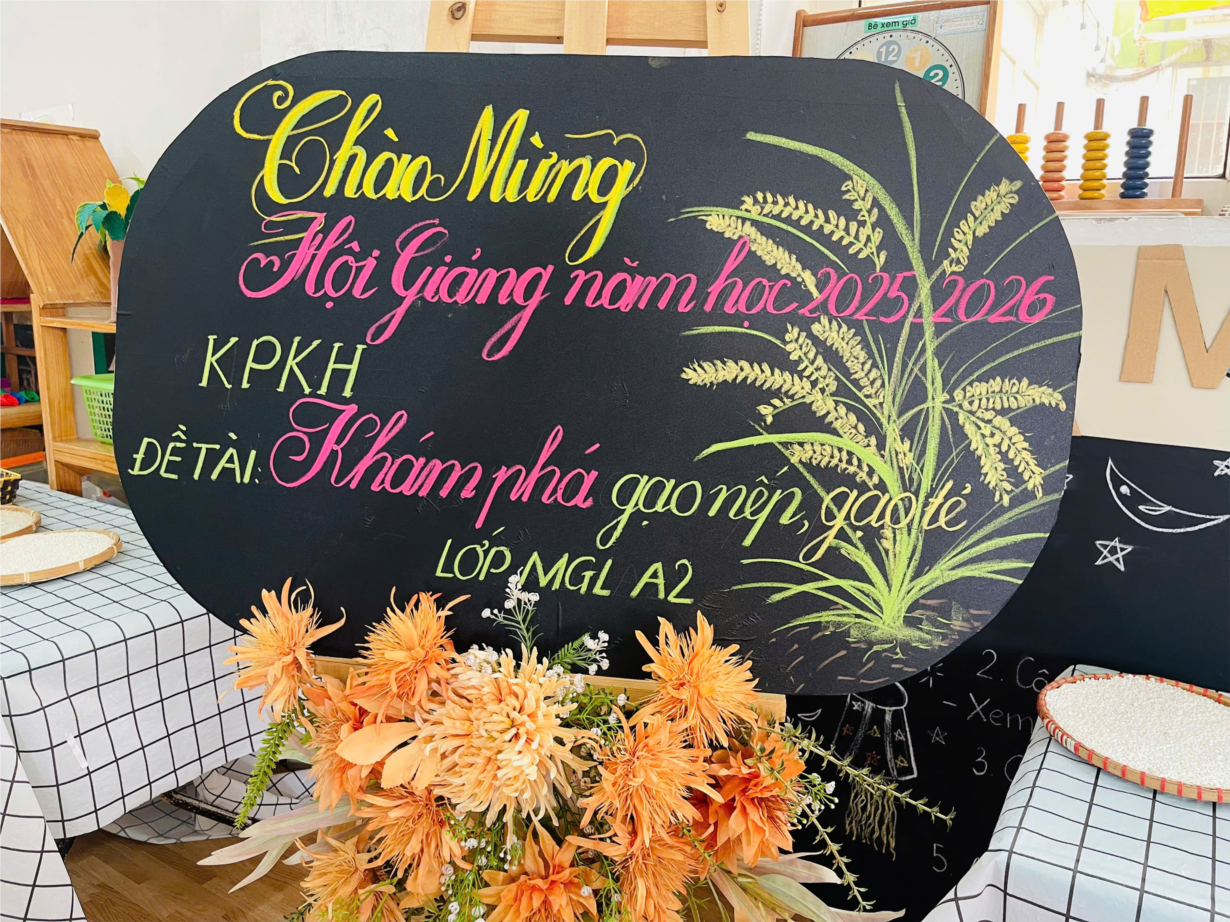 Bé xem giờ
12 1
2
Chào Mừng
Hội Giảng năm học 2025_2026
KPKH
ĐỀ TÀI: Khám phá gạo nếp, gạo tẻ
LỚP MGL A2
M
2. Cô
- Xem
3.
5